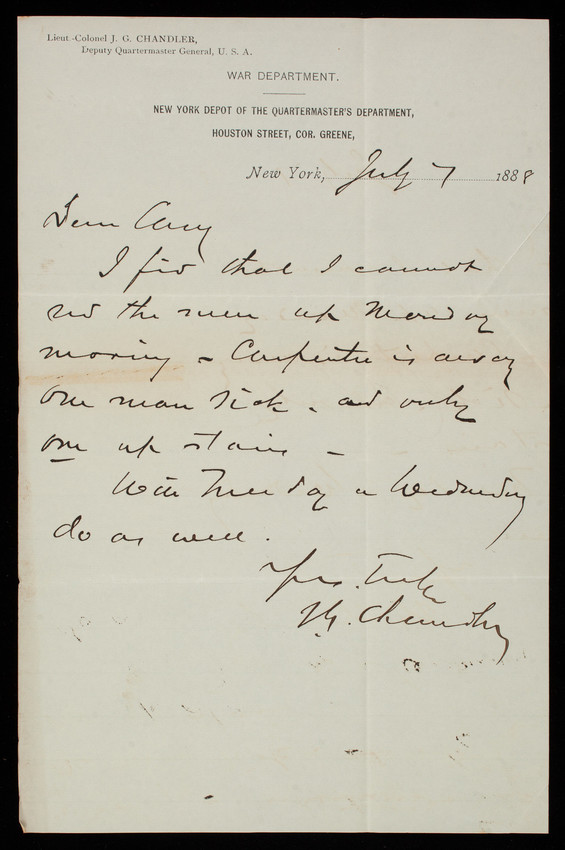 Lieut.-Colonel J. G. CHANDLER,
Deputy Quartermaster General, U. S. A.
WAR DEPARTMENT.
NEW YORK DEPOT OF THE QUARTERMASTER'S DEPARTMENT,
HOUSTON STREET, COR. GREENE,
New York, July 7 1888
Dear Casey
I find that I cannot
send the men up Monday
morning - Carpenter is away
one man sick - and only
one up stairs -
Will Tuesday or Wednesday
do as well.
Yrs. Truly
J. G. Chandler